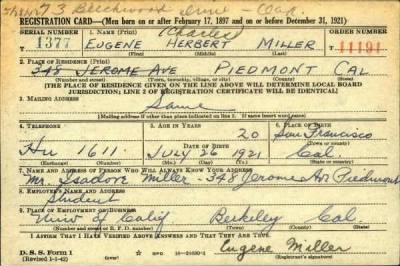 73 Beechwood Drive Oak.
REGISTRATION CARD—(Men born on or after February 17, 1897 and on or before December 31, 1921)
SERIAL NUMBER 1. NAME (Print) Charles ORDER NUMBER
T 377 EUGENE HERBERT MILLER 11191
(First) (Middle) (Last)
2. PLACE OF RESIDENCE (Print)
348 JEROME AVE PIEDMONT CAL
(Number and street) (Town, township, village, or city) (County) (State)
[THE PLACE OF RESIDENCE GIVEN ON THE LINE ABOVE WILL DETERMINE LOCAL BOARD
JURISDICTION; LINE 2 OF REGISTRATION CERTIFICATE WILL BE IDENTICAL]
3. MAILING ADDRESS
Same
[Mailing address if other than place indicated on line 2. If same insert word same]
4. TELEPHONE 5. AGE IN YEARS 6. PLACE OF BIRTH
20 San Francisco
DATE OF BIRTH (Town or county)
Hu 1611 JULY 26 1921 Cal.
(Exchange) (Number) (Mo.) (Day) (Yr.) (State or country)
7. NAME AND ADDRESS OF PERSON WHO WILL ALWAYS KNOW YOUR ADDRESS
Mr. Isadore Miller 348 Jerome Av Piedmont
8. EMPLOYER'S NAME AND ADDRESS
Student
9. PLACE OF EMPLOYMENT OR BUSINESS
Univ of Calif Berkeley Cal.
(Number and street or R. F. D. number) (Town) (County) (State)
I AFFIRM THAT I HAVE VERIFIED ABOVE ANSWERS AND THAT THEY ARE TRUE.
D. S. S. Form 1
(Revised 1-1-42) Eugene Miller